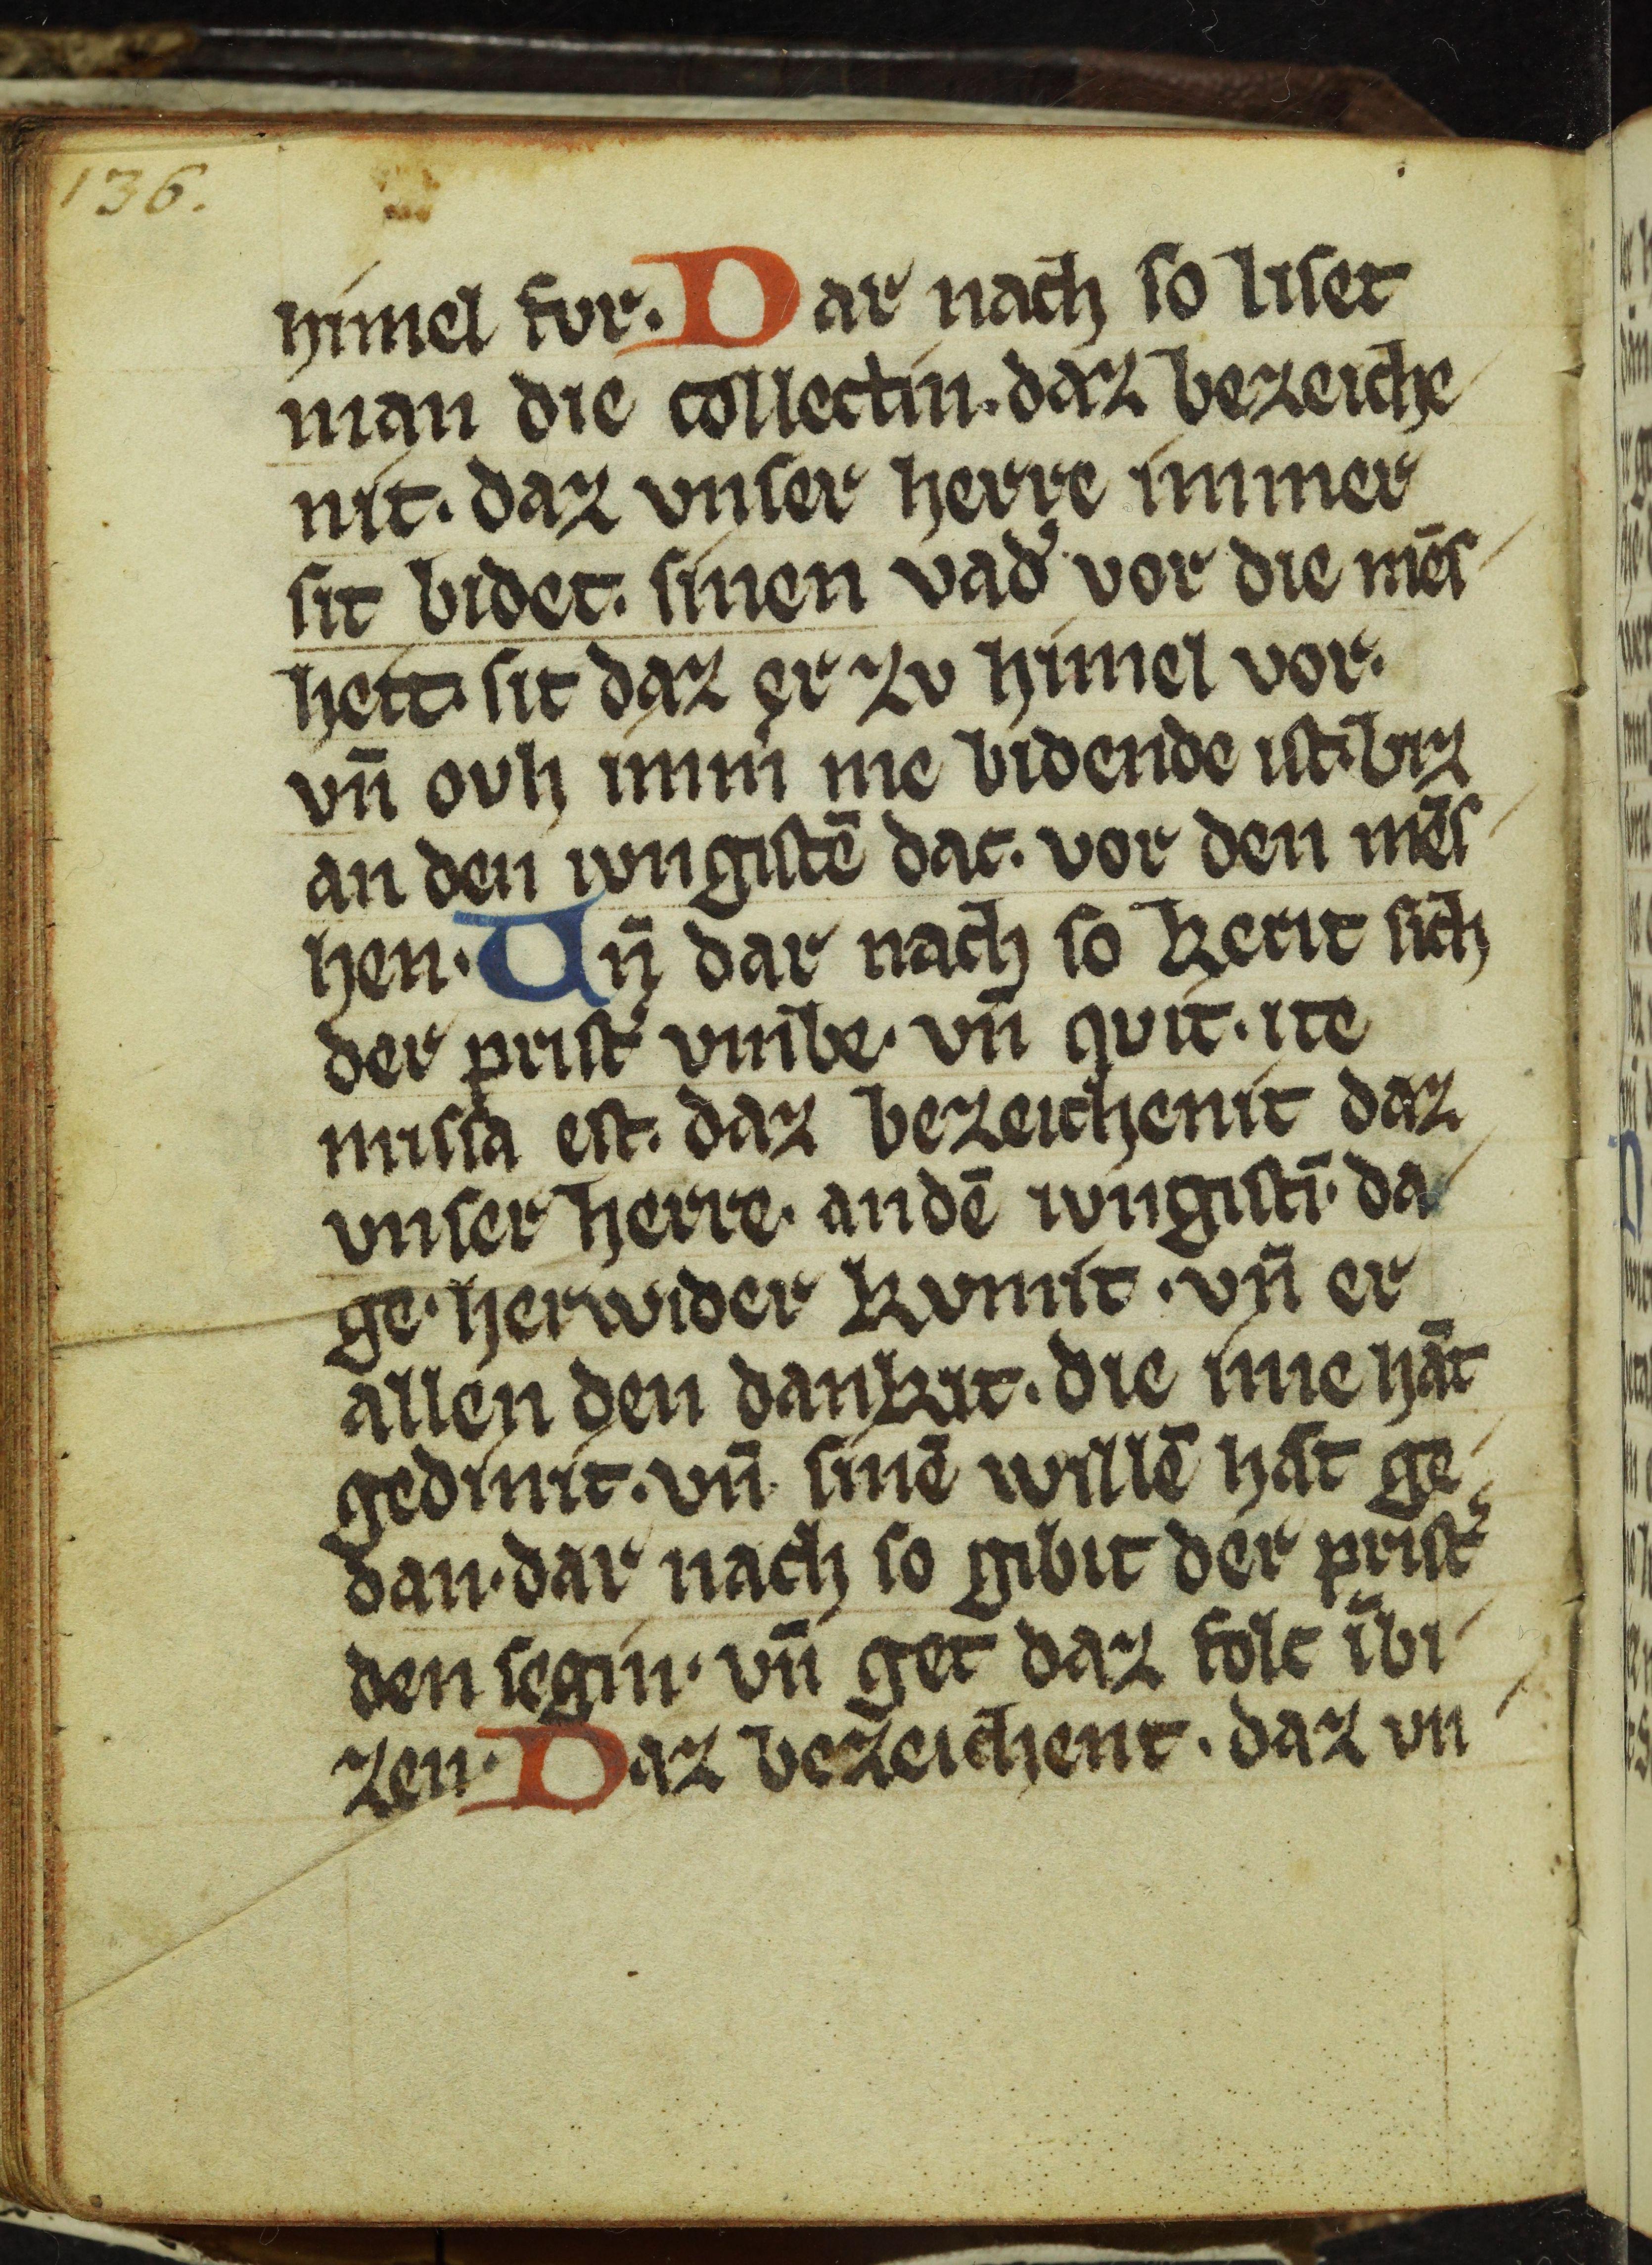 136.
himel fvr. Dar nach so liset
man die collectin. daz bezeiche
nit. daz vnser herre immer
sit bidet. sinen vad' vor die mēs
heit. sit daz er zv himel vor.
vn̄ ovh imm̄ me bidende ist. biz
an den ivngistē dac. vor den mēs
hen. Vn̄ dar nach so kerit sich
der prist' vmbe. vn̄ qvit. ite
missa est. daz bezeichenit daz
vnser herre. an dē ivngistī. da
ge. her wider kvmit. vn̄ er
allen den dankit. die ime hāt
gedinit. vn̄ sinē willē hāt ge
dan. dar nach so gibit der prist'
den segin. vn̄ get daz folc ībi
zen. Daz bezeichent. daz vn